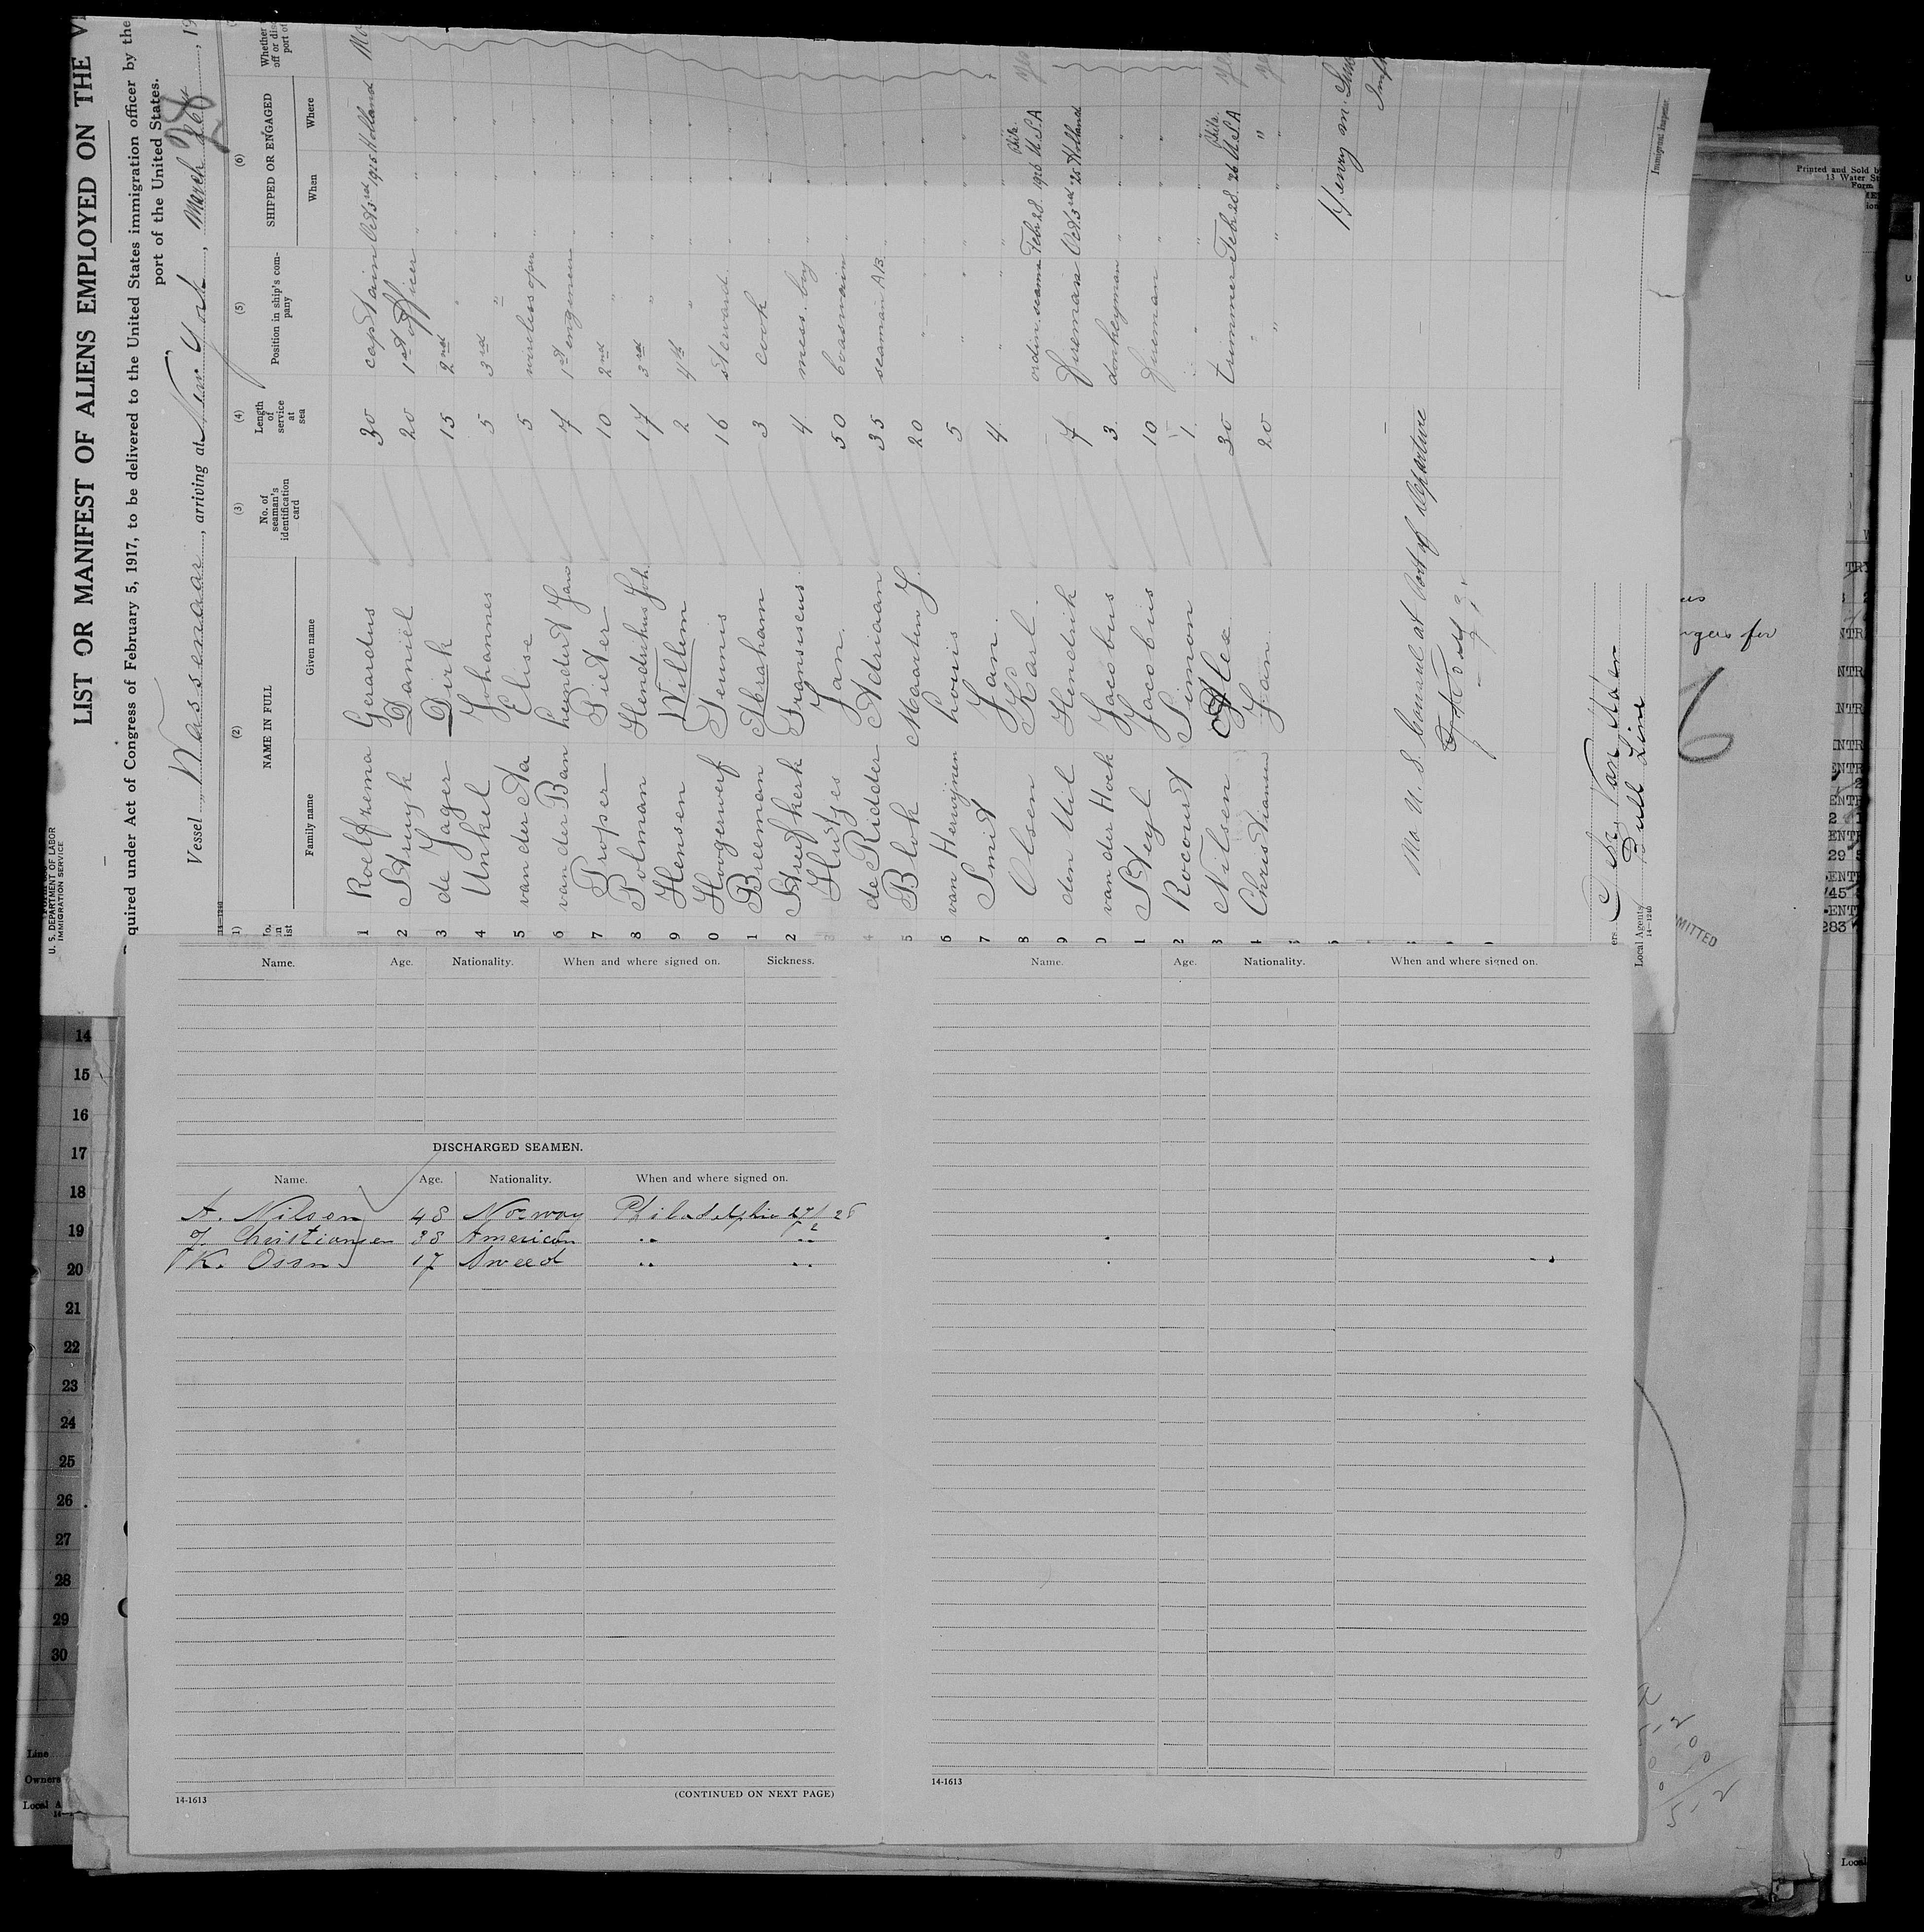 U. S. DEPARTMENT OF LABOR
IMMIGRATION SERVICE
LIST OR MANIFEST OF ALIENS EMPLOYED ON THE
quired under Act of Congress of February 5, 1917, to be delivered to the United States immigration officer by the
port of the United States.
Vessel Wassenaar, arriving at New York, March 26th, 19
28
(2) (3) (4) (5) (6)
NAME IN FULL No. of seaman's identification card Length of service at sea Position in ship's company SHIPPED OR ENGAGED Whether
Family name Given name When Where
1 Roelfzema Gerardus 30 captain Oct 3rd 1925 Holland
2 Struyk Daniël 20 1st officer " "
3 de Jager Dirk 15 2nd " " "
4 Unkel Johannes 5 3rd " " "
5 van der Aa Elise 5 wireless oper " "
6 van der Ban Leendert Jan 7 1st engineer " "
7 Proper Pieter 10 2nd " " "
8 Polman Hendrikus Joh. 17 3rd " " "
9 Hensen Willem 2 4th " " "
0 Hoogerwerf Teunis 16 steward " "
1 Breeman Abraham 3 cook " "
2 Streefkerk Fransiscus 4 mess. boy " "
3 Hutges Jan 50 boatswain " "
4 de Ridder Adriaan 35 seaman A.B. " "
5 Blok Maarten J. 20 " " "
6 van Herwijnen Louis 5 " " "
7 Smit Jan 4 " " "
8 Olsen Karl – ordin. seaman Feb. 28. 1926 Phila. U.S.A yes
9 den Uil Hendrik 7 fireman Oct. 3rd 25 Holland
0 van der Hoek Jacobus 3 donkeyman " "
1 Steyl Jacobus 10 fireman " "
2 Rocourt Simon 1 " " "
3 Nilsen Alex 30 trimmer Feb. 28. 26 Phila. U.S.A yes
4 Christiansen Jan 20 " " " yes
Henry M.
No U. S. Consul at Port of departure
Immigrant Inspector.
Van Aden
Bull Line
Local Agents
14-1240
Name. Age. Nationality. When and where signed on. Sickness.
DISCHARGED SEAMEN.
Name. Age. Nationality. When and where signed on.
A. Nilsen 48 Norway Philadelphia
J. Christiansen 38 American " "
K. Ossn 17 Sweed " "
14-1613
(CONTINUED ON NEXT PAGE)
Name. Age. Nationality. When and where signed on.
14-1613
14
15
16
17
18
19
20
21
22
23
24
25
26
27
28
29
30
Line
Owners
Local
Printed and Sold by
13 Water St
Form
6
MITTED